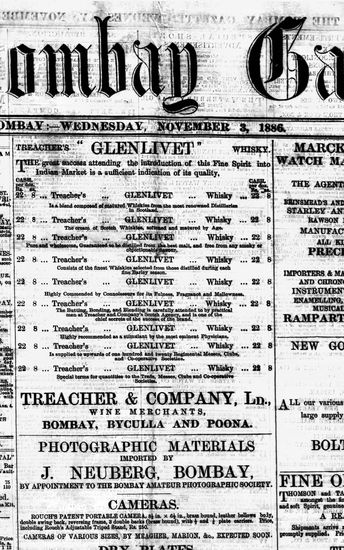 ombay Ga
OMBAY:—WEDNESDAY, NOVEMBER 3, 1886.
TREACHER'S "GLENLIVET" WHISKY.
THE great success attending the introduction of this Fine Spirit into
Indian Market is a sufficient indication of its quality,
22 8 ... Treacher's ... GLENLIVET ... Whisky ... 22 8
Is a blend composed of matured Whiskies from the most renowned Distilleries
in Scotland.
22 8 ... Treacher's ... GLENLIVET ... Whisky ... 22 8
The cream of Scotch Whiskies, softened and matured by Age.
22 8 ... Treacher's ... GLENLIVET ... Whisky ... 22 8
Pure and wholesome, Guaranteed to be distilled from the best malt, and free from any smoky or
objectionable flavour.
22 8 ... Treacher's ... GLENLIVET ... Whisky ... 22 8
Consists of the finest Whiskies selected from those distilled during each
Season.
22 8 ... Treacher's ... GLENLIVET ... Whisky ... 22 8
Highly Commended by Connoisseurs for its Fulness, Fragrance and Mellowness.
22 8 ... Treacher's ... GLENLIVET ... Whisky ... 22 8
The Butting, Bonding, and Blending is carefully attended to by practical
men at Treacher and Company's Scotch Agency, and is one of the
chief secrets of the success of the brand.
22 8 ... Treacher's ... GLENLIVET ... Whisky ... 22 8
Highly recommended as a stimulant by the most eminent Physicians.
22 8 ... Treacher's ... GLENLIVET ... Whisky ... 22 8
Is supplied to upwards of one hundred and twenty Regimental Messes, Clubs,
and Co-operative Societies.
22 8 ... Treacher's ... GLENLIVET ... Whisky ... 22 8
Special terms for quantities to the Trade, Messes, Clubs and Co-operative
Societies.
TREACHER & COMPANY, LD.,
WINE MERCHANTS,
BOMBAY, BYCULLA AND POONA.
PHOTOGRAPHIC MATERIALS
IMPORTED BY
J. NEUBERG, BOMBAY,
BY APPOINTMENT TO THE BOMBAY AMATEUR PHOTOGRAPHIC SOCIETY.
CAMERAS.
ROUCH'S PATENT PORTABLE CAMERA, brass bound, leather bellows body,
double swing back, reversing frame, 3 double backs (brass bound), with
including Rouch's Adjustable Tripod Stand, Rs 250.
CAMERAS OF VARIOUS SIZES, BY MEAGHER, MARION, &c., EXPECTED SOON.
DRY PLATES
MARCK
WATCH MA
THE AGENT
BRINSMEAD'S AND
STARLEY AN
RAWSON
MANUFAC
ALL KI
PRECI
IMPORTERS & MA
AND CHRONO
INSTRUMENT
ENAMELLING,
MUSICAL
RAMPART
NEW GO
ALL our various
large supply
BOLT
FINE OL
THOMSON and TA
amongst the
and soft Spirit, genuine
A RE
Shipments arrive
promptly supplied.